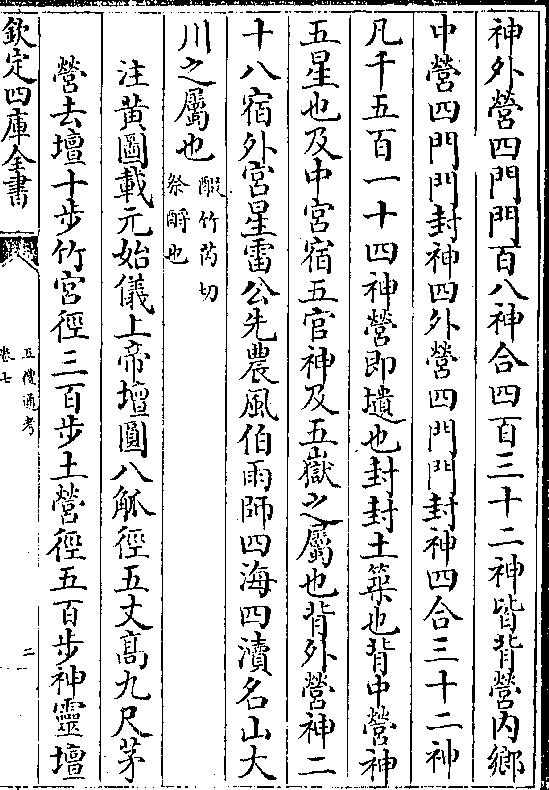 神外營四門門百八神合四百三十二神皆背營内鄉
中營四門門封神四外營四門門封神四合三十二神
凡千五百一十四神營即壝也封封土築也背中營神
五星也及中宮宿五官神及五嶽之屬也背外營神二
十八宿外宮星雷公先農風伯雨師四海四瀆名山大
川之屬也
醊竹芮切
祭酹也
注黄圖載元始儀上帝壇圓八觚徑五丈髙九尺茅
營去壇十步竹宮徑三百步土營徑五百步神靈壇
欽定四庫全書
五禮通考
卷七
二